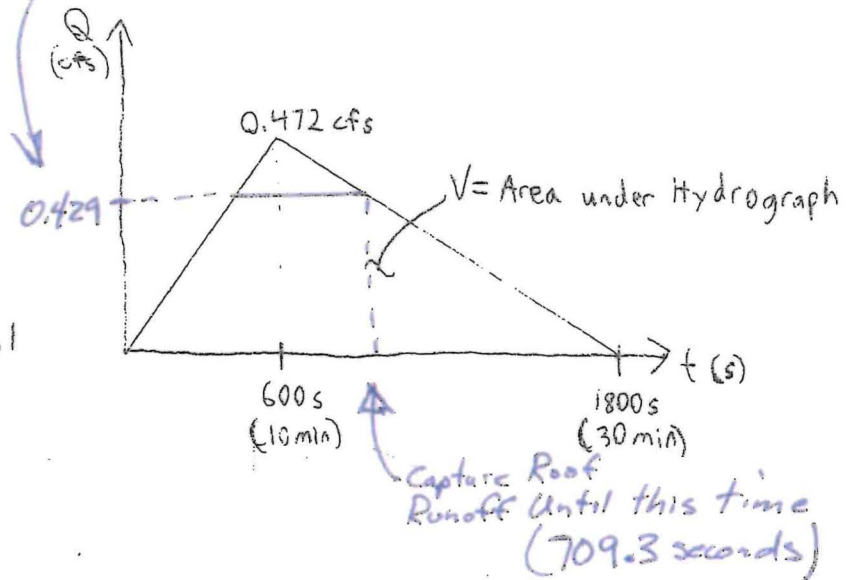 Q
(cfs)
0.472 cfs
0.429
V = Area under Hydrograph
t (s)
600s
(10 min)
1800s
(30 min)
Capture Roof
Runoff Until this time
(709.3 seconds)